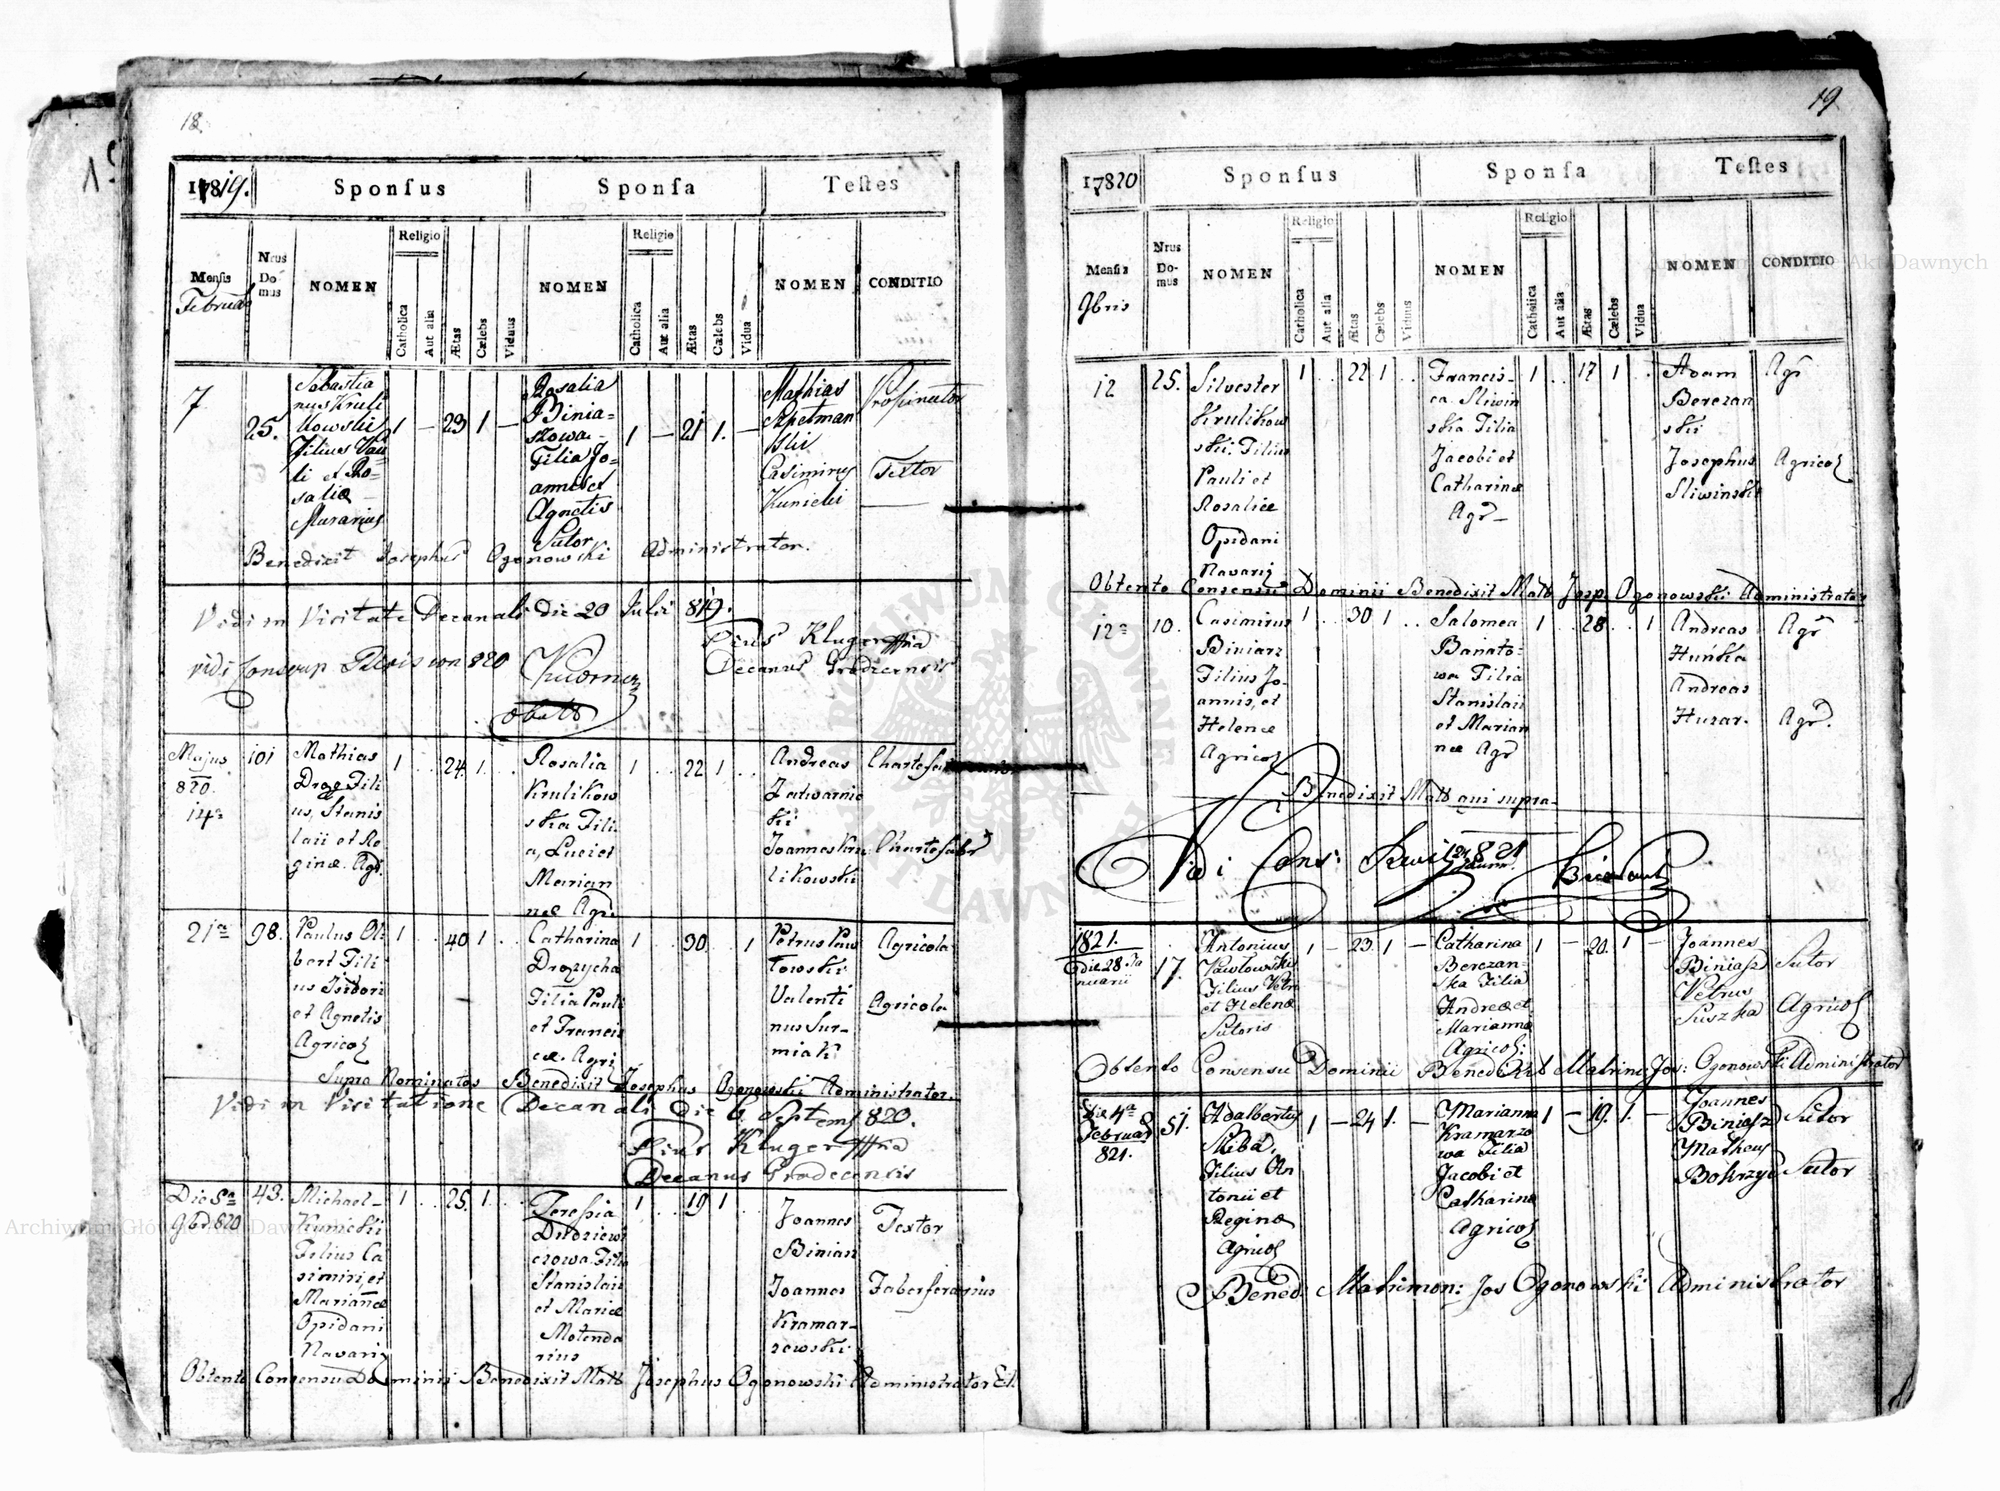 18.
1819.
Sponsus
Sponsa
Testes
Mensis
Februar
Nrus Domus
NOMEN
Religio
Catholica
Aut alia
Ætas
Cælebs
Viduus
NOMEN
Religio
Catholica
Aut alia
Ætas
Cælebs
Vidua
NOMEN
CONDITIO
7
25.
Sebastia
nus Kruli
kowski
Filius Pau
li et Ro-
saliæ
Murarius
1 — 23 1 —
Rosalia
Binia-
szowa
Filia Jo-
annis et
Agnetis
Sutor
1 — 21 1. —
Mathias
Szpetman
ski
Casimirus
Kunicki
Propinator
Textor
Benedixit Josephus Ogonowski Administrator.
Vidi in Visitate Decanali die 20 Julii 819.
Pius Kluger
Decanus Grodecensis
vidi 820
Majus
820.
14a
101
Mathias
Fili
us, Stanis
laii et Re
ginæ. Agr.
1 . . 24. 1. . .
Rosalia
Krulikow
ska Fili
a, Luci et
Marian
næ Agr.
1 . . 22 1 . .
Andreas
Jatwarnic
ki
Joannes Kru
likowski
Chartefabr
21a
98.
Paulus Ol
bert Fili
us Isidori
et Agnetis
Agricol
1 . . 40 1 . .
Catharina
Drozycha
Filia Pauli
et Francis
cæ. Agri
1 . . 30. . 1
Petrus Paw
lowski
Valenti
nus Sur-
miak
Agricola
Agricola
Supra Nominatos Benedixit Josephus Ogonowski Administrator.
Vidi in Visitatione Decanali Die 6 Septem 820.
Pius Kluger
Decanus Grodecensis
Die 5a
9bris 820
43.
Michael
Kunicki
Filius Ca
simiri, et
Mariannæ
Opidani
Navariæ
1 . . 25. 1 . .
Teressia
Dudziewi
czowa Filia
Stanislaii
et Mariæ
Molenda
rius
1 . . 19 1 . .
Joannes
Biniarz
Joannes
Kramar-
zowski
Textor
Faber ferarius
Obtento Consensu Dominii Benedixit Matr Josephus Ogonowski Administrator
19
1820
Sponsus
Sponsa
Testes
Mensis
9bris
Nrus Do-mus
NOMEN
Religio
Catholica
Aut alia
Ætas
Cælebs
Viduus
NOMEN
Religio
Catholica
Aut alia
Ætas
Cælebs
Vidua
NOMEN
CONDITIO
12
25.
Silvester
Krulikow
ski. Filius
Pauli et
Rosaliæ
Opidani
Navariæ
1 . . 22 1 . .
Francis-
ca Sliwin
ska Filia
Jacobi et
Catharinæ
Agr
1 . . 17 1 . .
Adam
Berezan
ski
Josephus
Sliwinski
Agr
Agricol
Obtento Consensu Dominii Benedixit Matr Josp. Ogonowski Administrator
12a
10.
Casimirus
Biniarz
Filius Jo-
annis, et
Helenæ
Agricol
1 . . 30 1 . .
Salomea
Banato-
wa Filia
Stanislaii
et Marian
næ Agr
1 . . 28 . 1
Andreas
Huńka
Andreas
Huzar.
Agr
Agr.
Benedixit Matr qui supra
Vidi Cons: 821
1821.
die 28 Ja
nuarii
17.
Antonius
Pawlowski
Filius Petri
et Helenæ
Sutoris
1 — 23. 1 —
Catharina
Berezan-
ska Filia
Andreæ et
Mariannæ
Agricol:
1 — 20. 1 —
Joannes
Biniasz
Petrus
Suszka
Sutor
Agricol
Obtento Consensu Dominii Benedixit Matrim: Jos: Ogonowski Administrator
Die 4a
Februar
821.
51.
Adalbertus
Skiba,
Filius An
tonii et
Reginæ
Agricol
1 — 24 1. —
Marianna
Kramarzo
wa Filia
Jacobi et
Catharinæ
Agricol
1 — 19. 1. —
Joannes
Biniasz
Matheus
Bokrzyc
Sutor
Sutor
Bened: Matrimon: Jos Ogonowski Administrator
Archiwum Główne Akt Dawnych
Archiwum Główne Akt Dawnych
ARCHIWUM GŁÓWNE AKT DAWNYCH